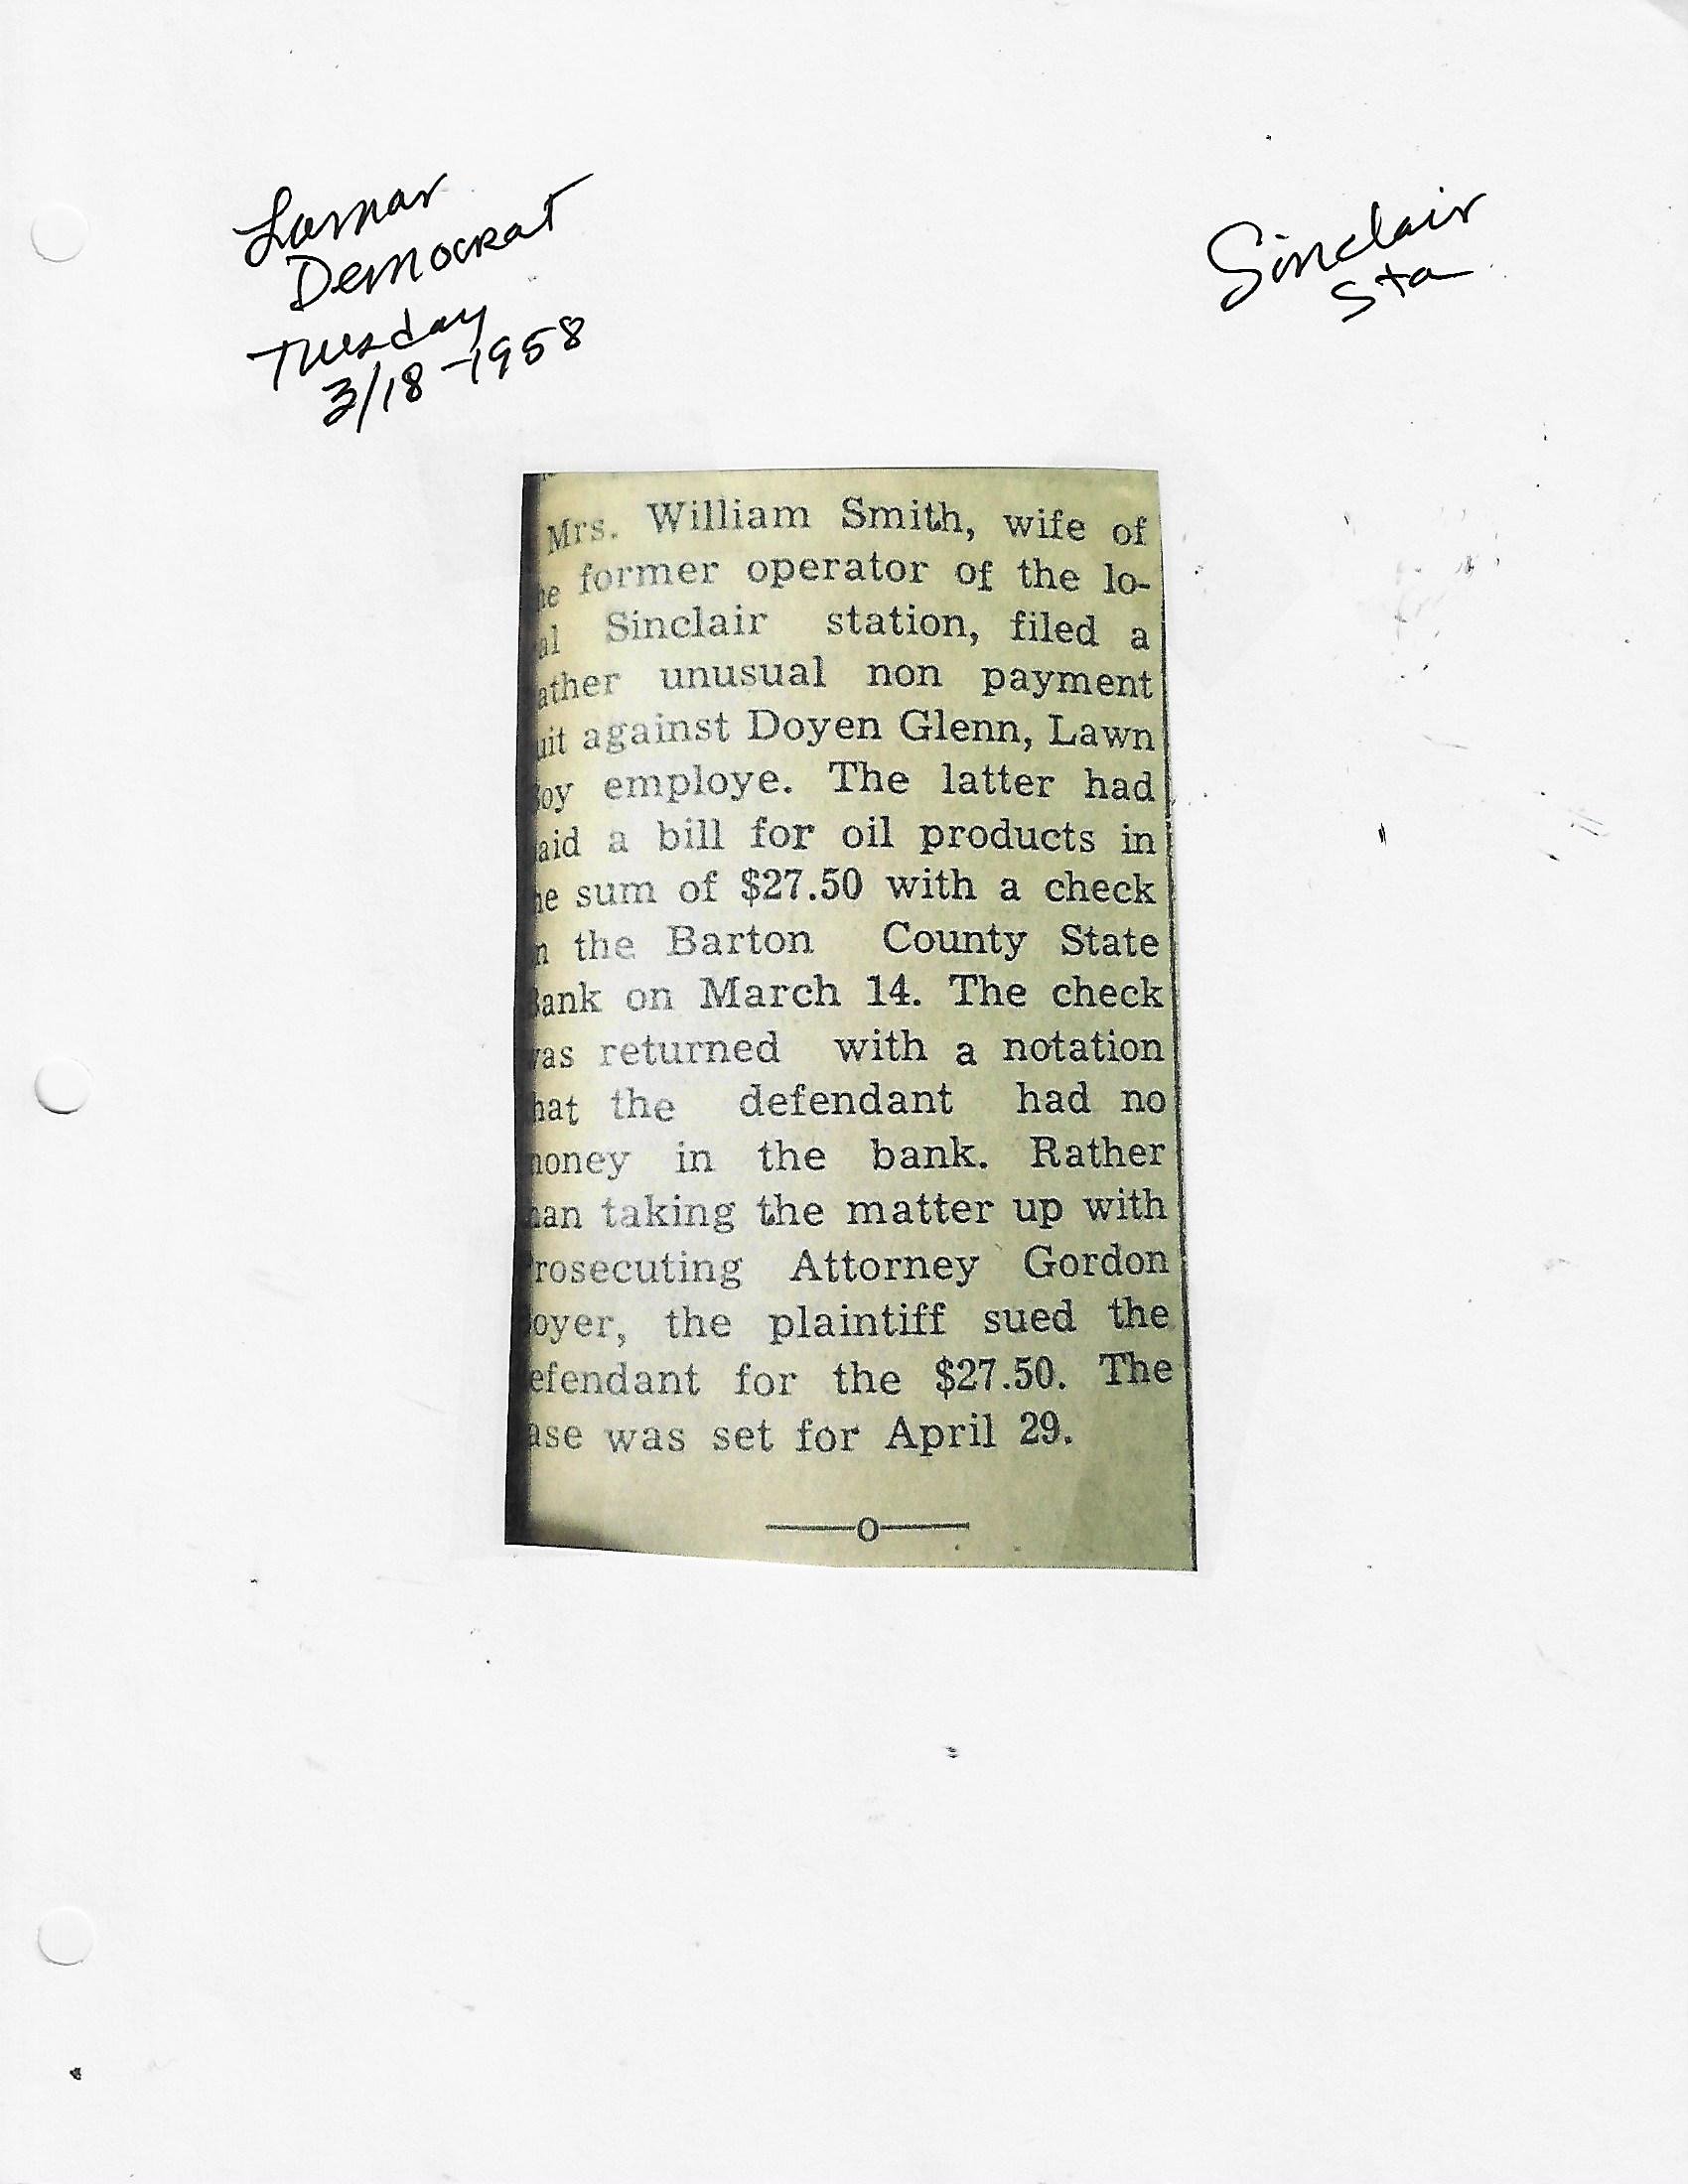 Lamar
Democrat
Tuesday
3/18-1958
Sinclair
Sta
Mrs. William Smith, wife of
he former operator of the lo-
al Sinclair station, filed a
ather unusual non payment
uit against Doyen Glenn, Lawn
oy employe. The latter had
aid a bill for oil products in
he sum of $27.50 with a check
n the Barton County State
ank on March 14. The check
as returned with a notation
hat the defendant had no
oney in the bank. Rather
han taking the matter up with
rosecuting Attorney Gordon
oyer, the plaintiff sued the
efendant for the $27.50. The
ase was set for April 29.